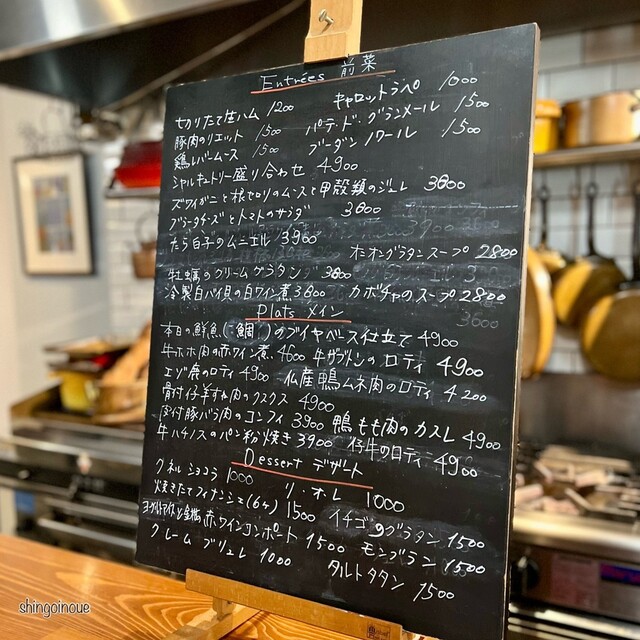 Entrées 前菜
切りたて生ハム 1200 キャロットラペ 1000
豚肉のリエット 1500 パテ・ド・グランメール 1500
鶏レバームース 1500 ブーダンノワール 1500
シャルキュトリー盛り合わせ 4900
ズワイガニと根セロリのムースと甲殻類のジュレ 3800
ブラータチーズとトマトのサラダ 3800
たら白子のムニエル 3900 オニオングラタンスープ 2800
牡蠣のクリームグラタン 3800
冷製白バイ貝の白ワイン煮 3800 カボチャのスープ 2800
Plats メイン
本日の鮮魚(鯛)のブイヤベース仕立て 4900
牛ホホ肉の赤ワイン煮 4600 牛ザブトンのロティ 4900
エゾ鹿のロティ 4900 仏産鴨ムネ肉のロティ 4200
骨付仔羊すね肉のクスクス 4900
皮付豚バラ肉のコンフィ 3900 鴨もも肉のカスレ 4900
牛ハチノスのパン粉焼き 3900 仔牛のロティ 4900
Dessert デザート
クネルショコラ 1000 リ・オ・レ 1000
焼きたてフィナンシェ(6ヶ) 1500 イチゴのグラタン 1500
赤ワインコンポート 1500 モンブラン 1500
クレームブリュレ 1000 タルトタタン 1500
shingoinoue